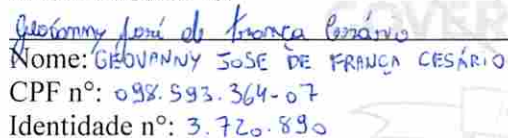 Geovanny José de França Cesário
Nome: GEOVANNY JOSE DE FRANÇA CESÁRIO
CPF nº: 098.593.364-07
Identidade nº: 3.720.890